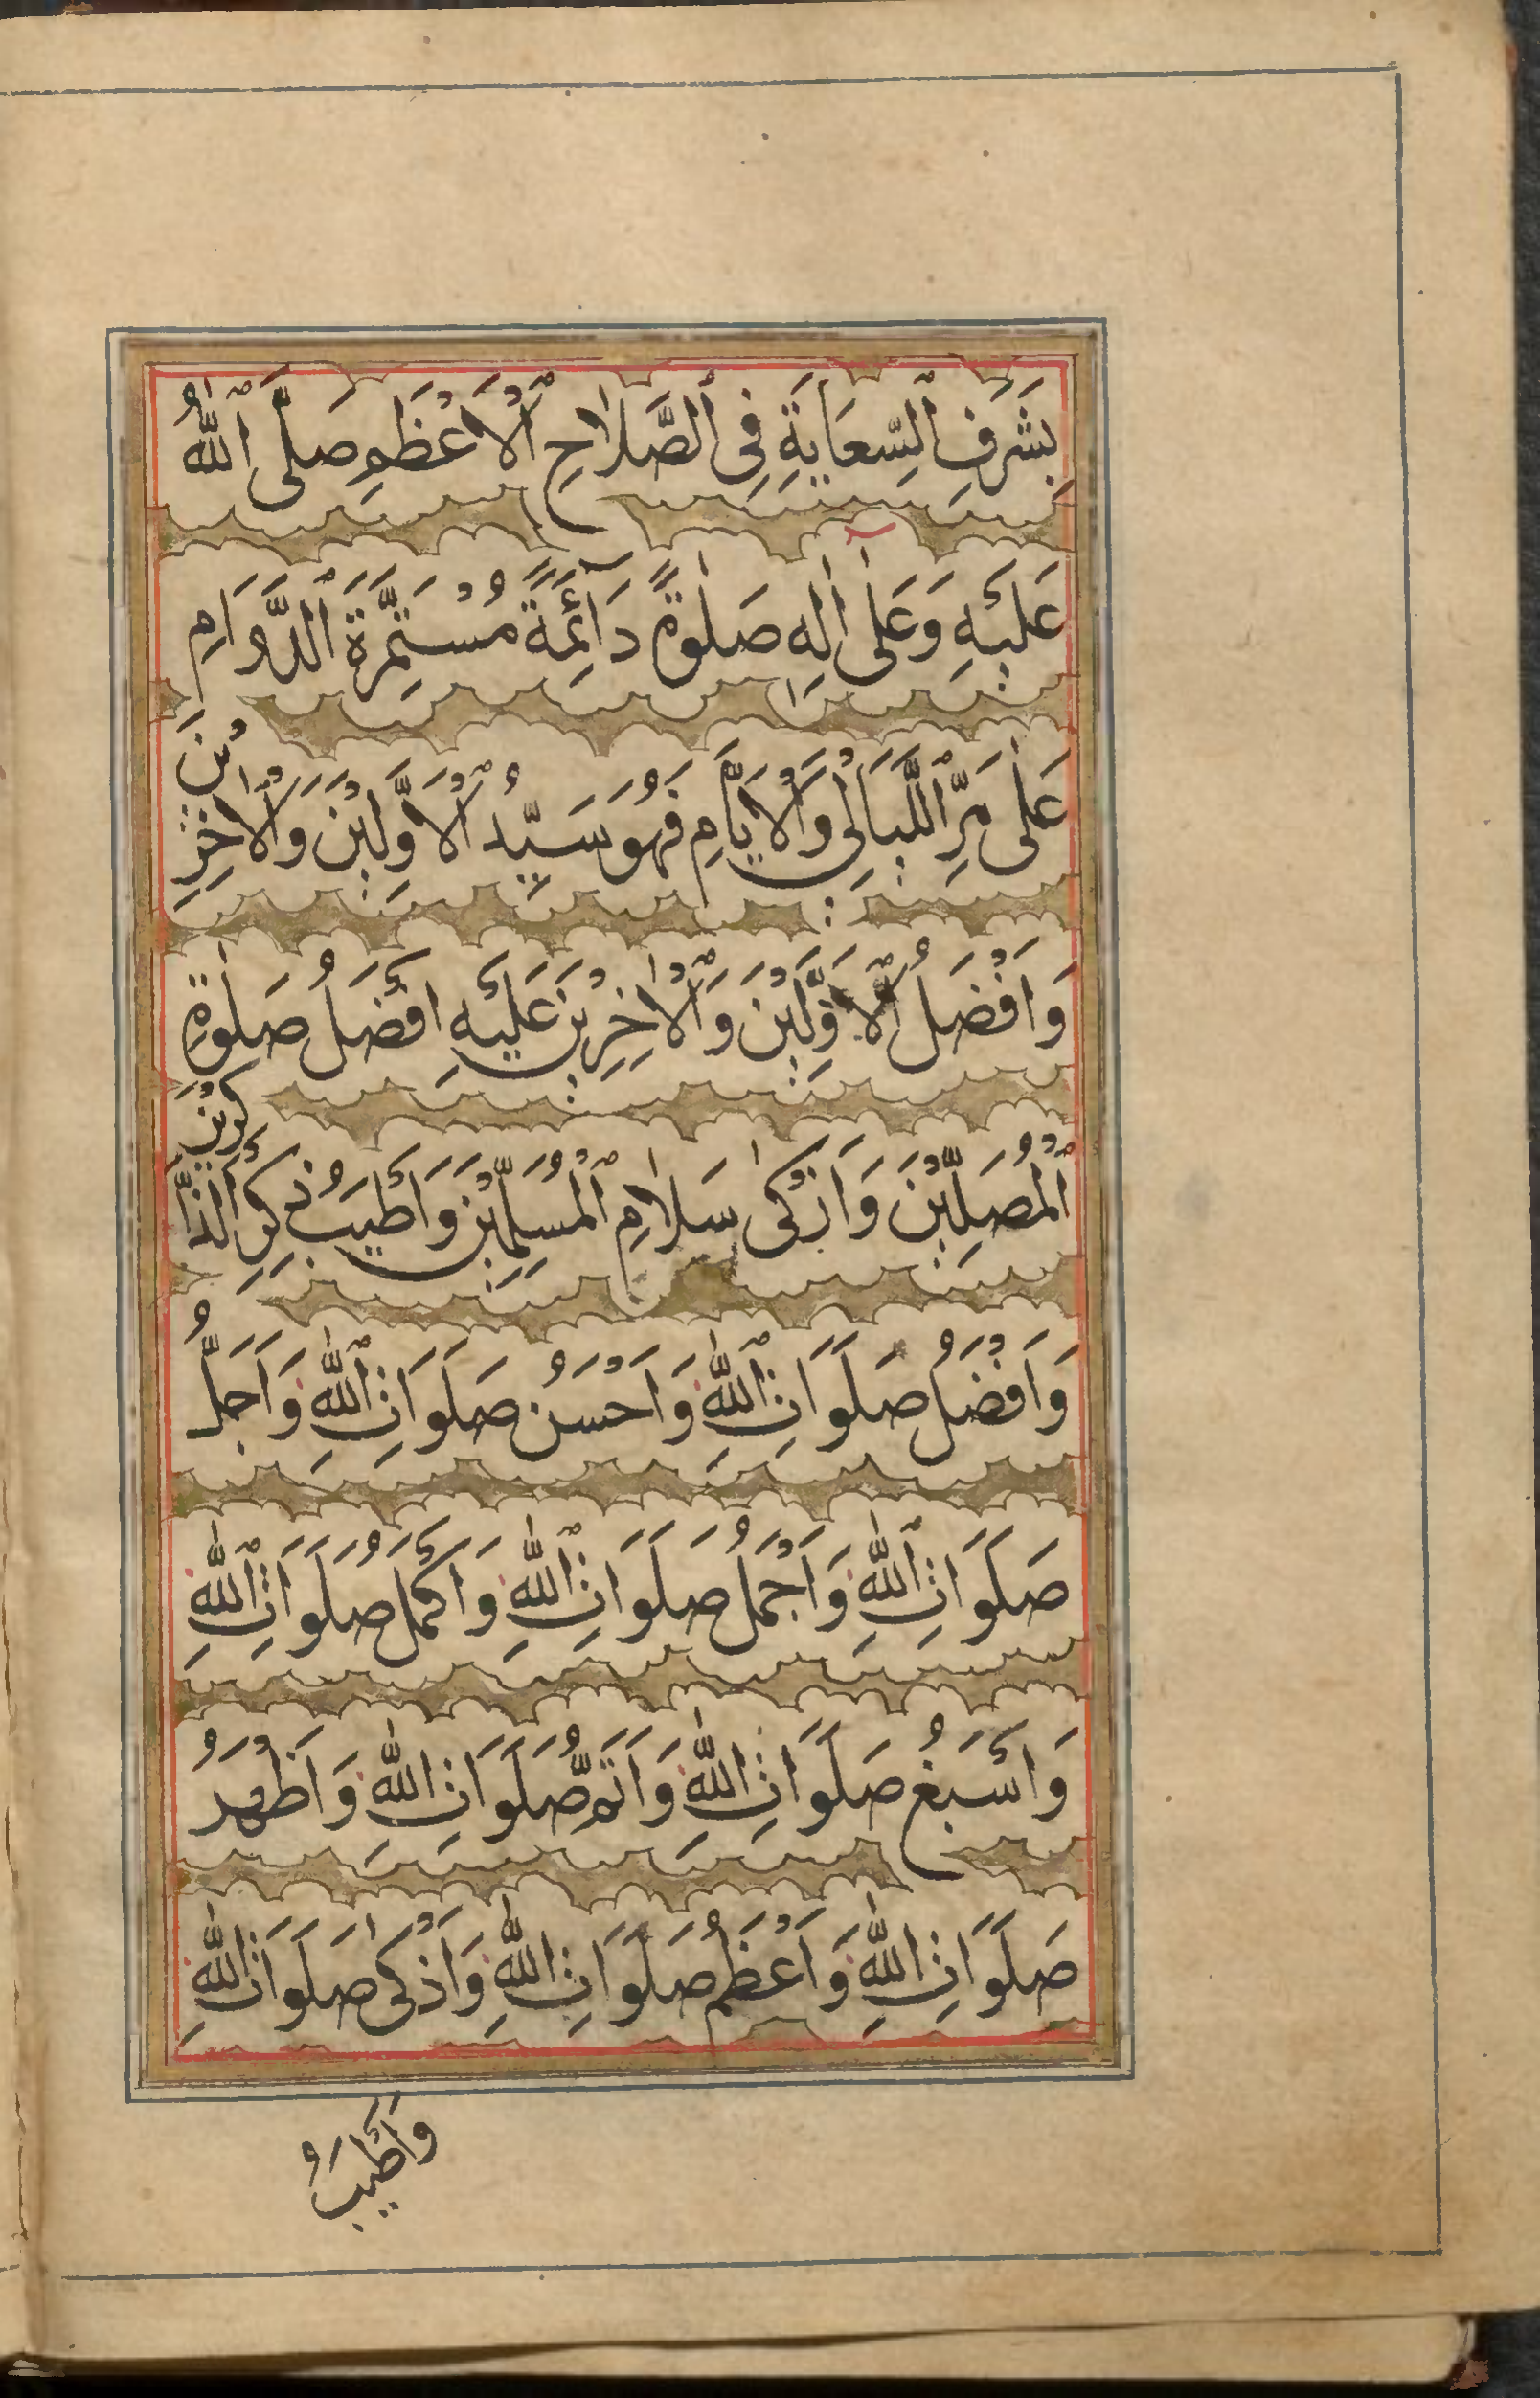 بِشَرَفِ ٱلسِّعَايَةِ فِى ٱلصَّلَاحِ ٱلْاَعْظَمِ صَلَّى ٱللّٰهُ
عَلَيْهِ وَعَلٰى اٰلِهِ صَلٰوةً دَآئِمَةً مُسْتَمِرَّةَ ٱلدَّوَامِ
عَلٰى مَرِّ اللَّيَالِى وَالْاَيَّامِ فَهُوَ سَيِّدُ ٱلْاَوَّلِيْنَ وَالْاٰخِرِيْنَ
وَاَفْضَلُ ٱلْاَوَّلِيْنَ وَٱلْاٰخِرِيْنَ عَلَيْهِ اَفْضَلُ صَلٰوةِ
ٱلْمُصَلِّيْنَ وَاَزْكٰى سَلَامِ ٱلْمُسَلِّمِيْنَ وَاَطْيَبُ ذِكْرِ الذَّاكِرِيْنَ
وَاَفْضَلُ صَلَوَاتِ ٱللّٰهِ وَاَحْسَنُ صَلَوَاتِ ٱللّٰهِ وَاَجَلُّ
صَلَوَاتِ ٱللّٰهِ وَاَجْمَلُ صَلَوَاتِ ٱللّٰهِ وَاَكْمَلُ صَلَوَاتِ ٱللّٰهِ
وَاَسْبَغُ صَلَوَاتِ اللّٰهِ وَاَتَمُّ صَلَوَاتِ اللّٰهِ وَاَظْهَرُ
صَلَوَاتِ اللّٰهِ وَاَعْظَمُ صَلَوَاتِ اللّٰهِ وَاَذْكٰى صَلَوَاتِ اللّٰهِ
وَاَطْيَبُ